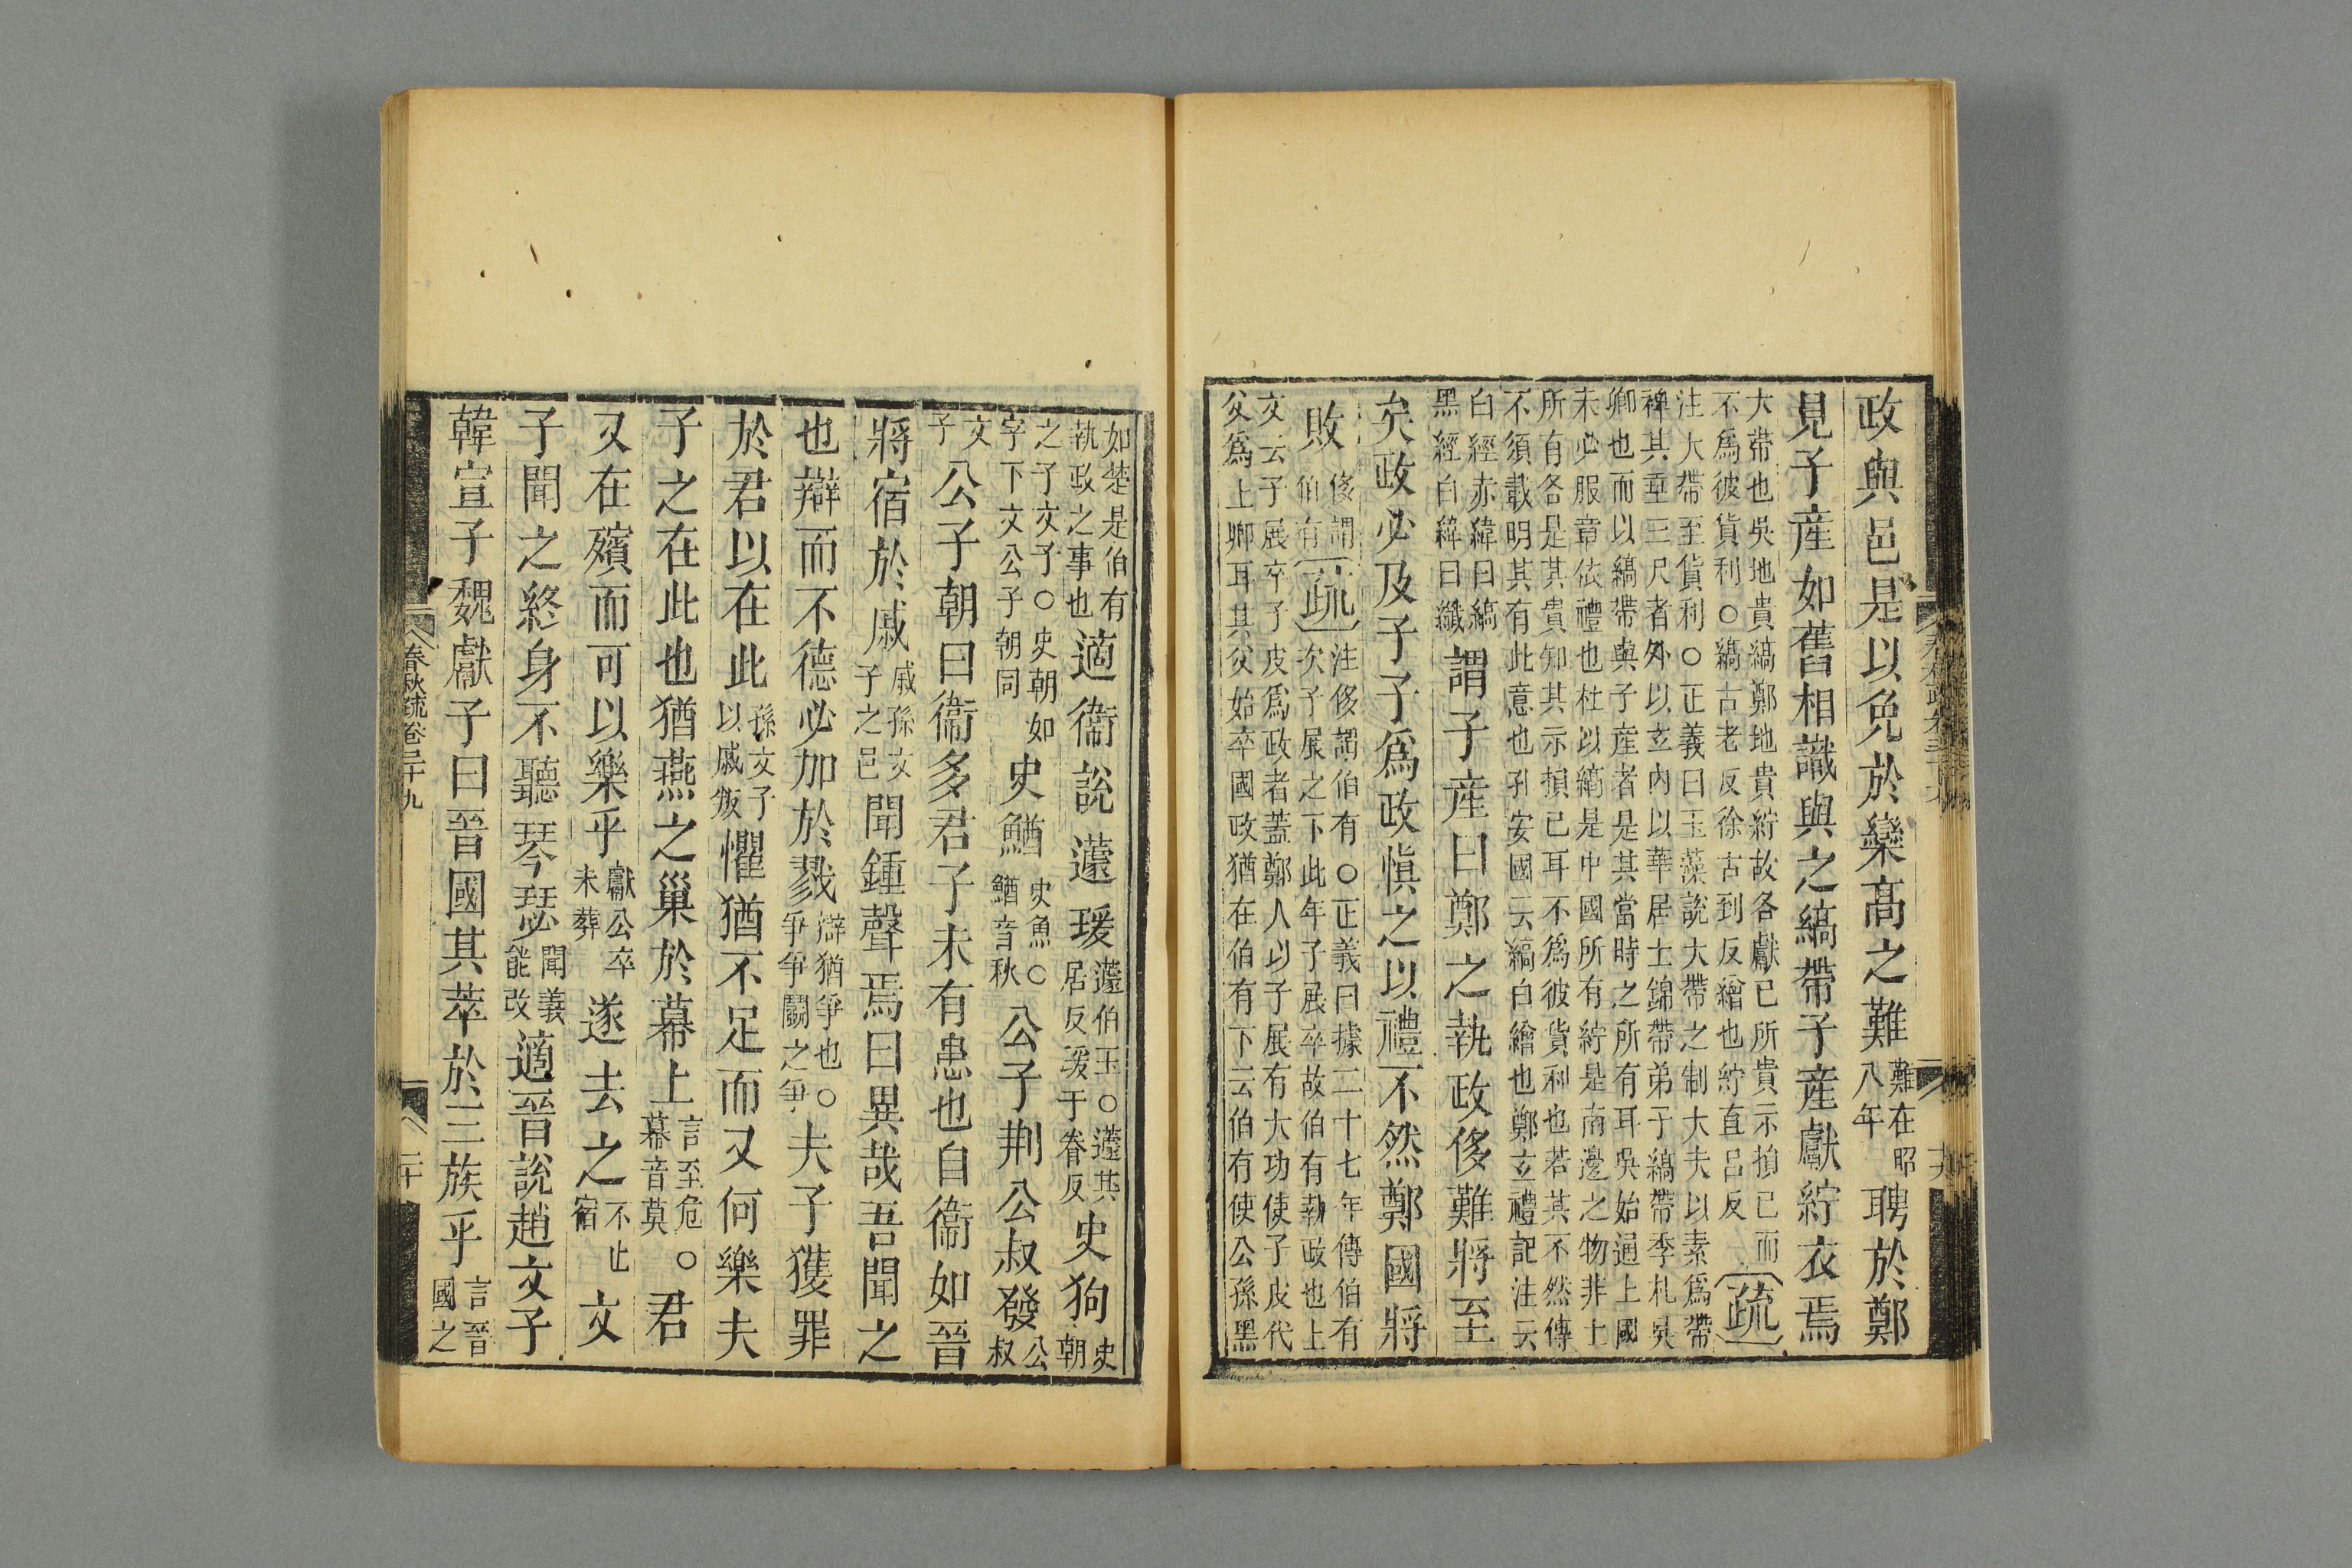 政與邑是以免於欒高之難難在昭八年聘於鄭
見子産如舊相識與之縞帶子産獻紵衣焉
大帶也吳地貴縞鄭地貴紵故各獻已所貴示損已而
不爲彼貨利○縞古老反徐古到反繒也紵直呂反疏
注大帶至貨利○正義曰玉藻說大帶之制大夫以素爲帶
裨其垂三尺者外以玄內以華居士錦帶弟子縞帶季札吳
卿也而以縞帶與子産者是其當時之所有耳吳始通上國
未必服章依禮也杜以縞是中國所有紵是南邊之物非土
所有各是其貴知其示損已耳不爲彼貨利也若其不然傳
不須載明其有此意也孔安國云縞白繒也鄭玄禮記注云
白經赤緯曰縞
黑經白緯曰纖謂子産曰鄭之執政侈難將至
矣政必及子子爲政慎之以禮不然鄭國將
敗侈謂伯有疏注侈謂伯有○正義曰據二十七年傳伯有
次子展之下此年子展卒故伯有執政也上
文云子展卒子皮爲政者蓋鄭人以子展有大功使子皮代
父爲上卿耳其父始卒國政猶在伯有下云伯有使公孫黑
如楚是伯有
執政之事也適衞說蘧瑗蘧伯玉○蘧其居反瑗于眷反史狗史朝
之子文子○史朝如字下文公子朝同史鰌史魚○鰌音秋公子荆公叔發公叔
文子公子朝曰衞多君子未有患也自衞如晉
將宿於戚戚孫文子之邑聞鍾聲焉曰異哉吾聞之
也辯而不德必加於戮辯猶爭也○爭爭鬭之爭夫子獲罪
於君以在此孫文子以戚叛懼猶不足而又何樂夫
子之在此也猶燕之巢於幕上言至危○幕音莫君
又在殯而可以樂乎獻公卒未葬遂去之不止宿文
子聞之終身不聽琴瑟聞義能改適晉說趙文子
韓宣子魏獻子曰晉國其萃於三族乎言晉國之
春秋疏卷三十九
二十